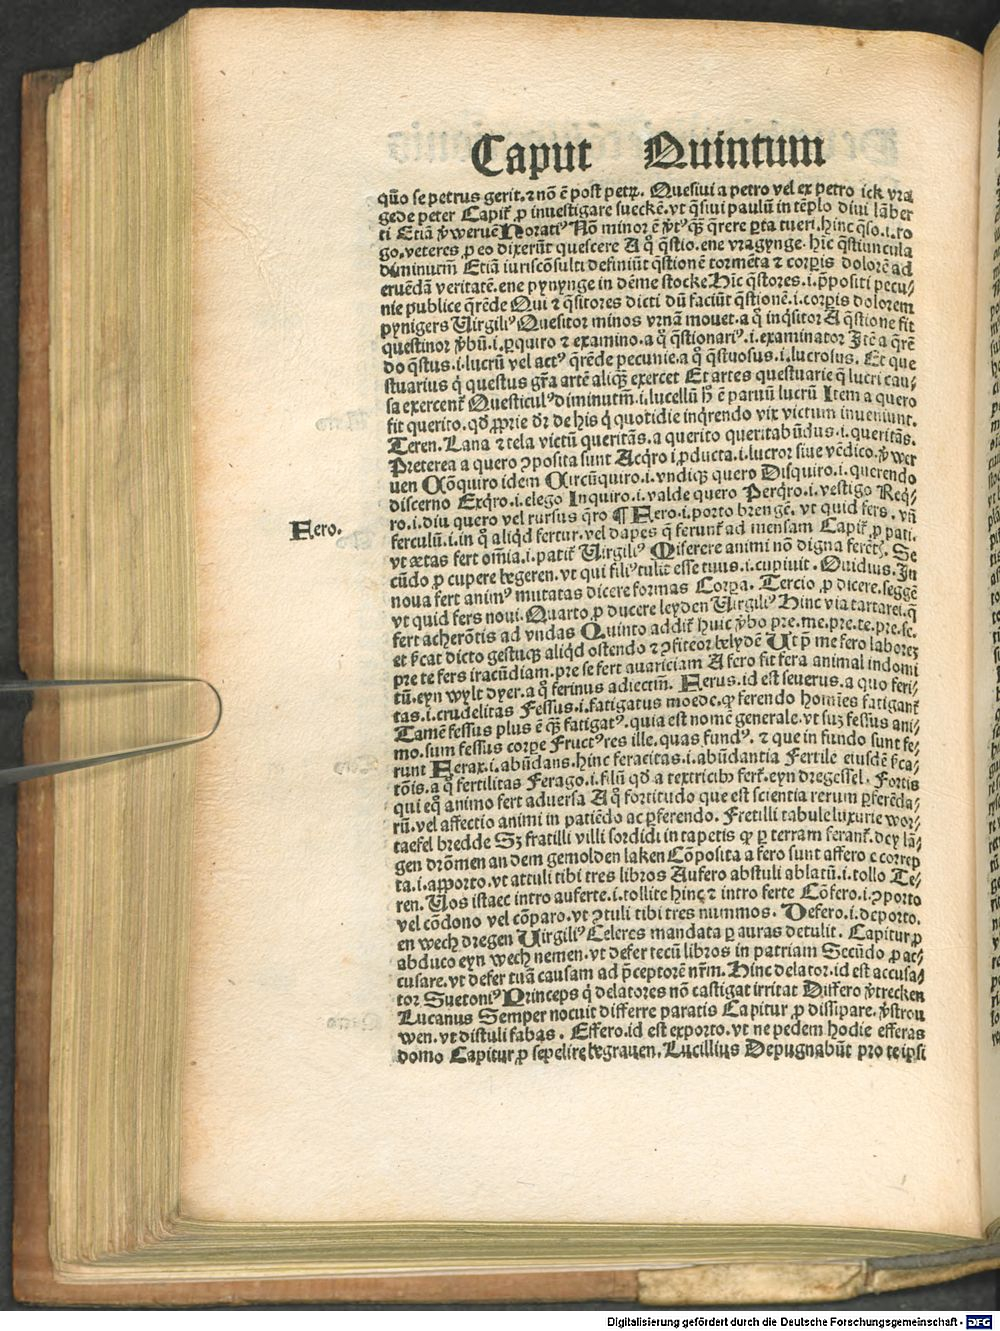 Caput Quintum
qũo se petrus gerit. ⁊ nõ ē post petꝝ. Quesiui a petro vel ex petro ick vra
gede peter Capit͛ ꝓ inuestigare sueckē. vt q̃siui paulū in tēplo diui lāber
ti Etiā ꝟweruē Horatiꝰ Nõ minor ē ꝟtꝰ q̃ꝫ q̃rere ꝑta tueri. hinc q̃so. i. ro
go. veteres ꝓ eo dixerūt quescere A q̊ q̃stio. ene vragynge. hīc q̃stiuncula
diminutiuꝫ Etiā iuriscõsulti definiūt q̃stionē tormēta ⁊ corꝑis dolorē ad
eruēdā veritatē. ene pynynge in dēme stocke Hīc q̃stores. i. p̄positi pecu⸗
nie publice q̃rēde Qui ⁊ q̃sitores dicti dū faciūt q̃stionē. i. corꝑis dolorem
pynigers Virgiliꝰ Quesitor minos vrnam mouet. a q̊ inq̃sitor A q̃stione fit
questinor ꝟbū. i. ꝑquiro ⁊ examino. a q̊ q̃stionariꝰ. i. examinator Itē a q̃rē
do q̃stus. i. lucrū vel actꝰ q̃rēde pecunie. a q̊ q̃stuosus. i. lucrosus. Et que
stuarius q̇ questus gr̄a artē aliqꝫ exercet Et artes questuarie q̄ lucri cau⸗
sa exercent͛ Questiculꝰ diminutiuꝫ. i. lucellū hͦ ē paruū lucrū Item a quero
fit querito. qđ ꝓprie dr̄ de his q̇ quotidie inq̃rendo vix victum inueniunt.
Teren. Lana ⁊ tela victū queritās. a querito queritabūdus. i. queritās.
Preterea a quero ꝯposita sunt Acq̃ro i ꝓducta. i. lucror siue vēdico. ꝟwer
uen Cõquiro idem Circūquiro. i. vndiqꝫ quero Disquiro. i. querendo
discerno Exq̃ro. i. elego Inquiro. i. valde quero Perq̃ro. i. vestigo Req̃⸗
ro. i. diu quero vel rursus q̃ro ¶ Fero. i. porto brengē. vt quid fers. vñ
Fero.
ferculū. i. in q̊ aliqđ fertur. vel dapes q̄ ferunt͛ ad mensam Capit͛ ꝓ pati.
vt ætas fert om̄ia. i. patit͛ Virgiliꝰ Miserere animi nõ digna ferētꝭ. Se
cūdo ꝓ cupere begeren. vt qui filiꝰ tulit esse tuus. i. cupiuit. Ouidius. In
noua fert animꝰ mutatas dicere formas Corꝑa. Tercio ꝓ dicere. seggē
vt quid fers noui. Quarto ꝓ ducere leyden Virgiliꝰ Hinc via tartarei. q̄
fert acherõtis ad vndas Quinto addit͛ huic ꝟbo pre. me. pre. te. pre. se.
et p̄cat dicto gestuqꝫ aliqđ ostendo ⁊ ꝯfiteor belydē Ut p̄ me fero laboreꝫ
pre te fers iracūdiam. pre se fert auariciam A fero fit fera animal indomi
tū. eyn wylt dyer. a q̊ ferinus adiectiuꝫ. Ferus. id est seuerus. a quo feri⸗
tas. i. crudelitas Fessus. i. fatigatus moede. qꝛ ferendo homīes fatigant͛
Tamē fessus plus ē q̃ꝫ fatigatꝰ. quia est nomē generale. vt suꝫ fessus ani⸗
mo. sum fessus corꝑe Fructꝰ res ille. quas fundꝰ. ⁊ que in fundo sunt fe⸗
runt Ferax. i. abūdans. hinc feracitas. i. abūdantia Fertile eiusdē ẜ̄ca⸗
tõis. a q̊ fertilitas Ferago. i. filū qđ a textricibꝰ fert͛. eyn dregessel. Fortis
qui eqͦ animo fert aduersa A q̊ fortitudo que est scientia rerum ꝑferēda⸗
rū. vel affectio animi in patiēdo ac ꝑferendo. Fretilli tabule luxurie wor⸗
taefel bredde Sꝫ fratilli villi sordidi in tapetis qꝛ ꝑ terram ferant͛. dey lā⸗
gen drõmen an dem gemolden laken Cõposita a fero sunt affero c correp
ta. i. apporto. vt attuli tibi tres libros Aufero abstuli ablatū. i. tollo Te⸗
ren. Vos istaec intro auferte. i. tollite hinc ⁊ intro ferte Cõfero. i. ꝯporto
vel cõdono vel cõparo. vt ꝯtuli tibi tres nummos. Defero. i. deporto.
en wech dregen Virgiliꝰ Celeres mandata ꝑ auras detulit. Capitur ꝓ
abduco eyn wech nemen. vt defer tecū libros in patriam Secūdo ꝓ ac⸗
cusare. vt defer tuā causam ad p̄ceptorē nr̄m. Hinc delator. id est accusa⸗
tor Suetoniꝰ Princeps q̇ delatores nõ castigat irritat Differo ꝟtrecken
Lucanus Semper nocuit differre paratis Capitur ꝓ dissipare. ꝟstrou
wen. vt distuli fabas. Effero. id est exporto. vt ne pedem hodie efferas
domo Capitur ꝓ sepelire begrauen. Lucillius Depugnabūt pro te ipsi
Digitalisierung gefördert durch die Deutsche Forschungsgemeinschaft - DFG